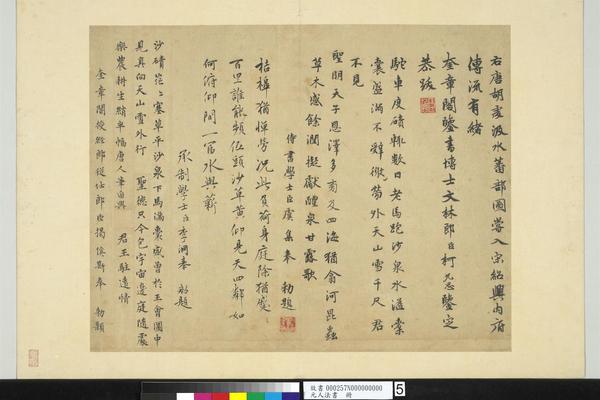 右唐胡虔汲水蕃部圖曾入宋紹興內府
傳流有緒
奎章閣鑒書博士文林郎臣柯九思鑒定
恭跋
駝車度磧動數日老馬跑沙泉水溢橐
囊盛滿不辭微帶外天山雪千尺君
不見
聖明天子恩澤多南及四海猶翕河昆蟲
草木感餘潤擬獻醴泉甘露歌
侍書學士臣虞集奉 勅題
桔槔猶憚勞況此負荷身庭除猶感
百里誰能頻伍頭沙草黃仰見天四鄰如
何府仰間一官水與薪
承制學士臣李泂奉 勅題
沙磧茫茫寒草平沙泉下馬滿囊盛曾於王會圖中
見真向天山雪外行 聖德只今包宇宙邊庭隨處
樂農耕生綃半幅唐人筆自與 君王駐遠情
奎章閣授經郎從仕郎臣揭傒斯奉 勅題
故書 000257N000000000
元人法書 冊
5